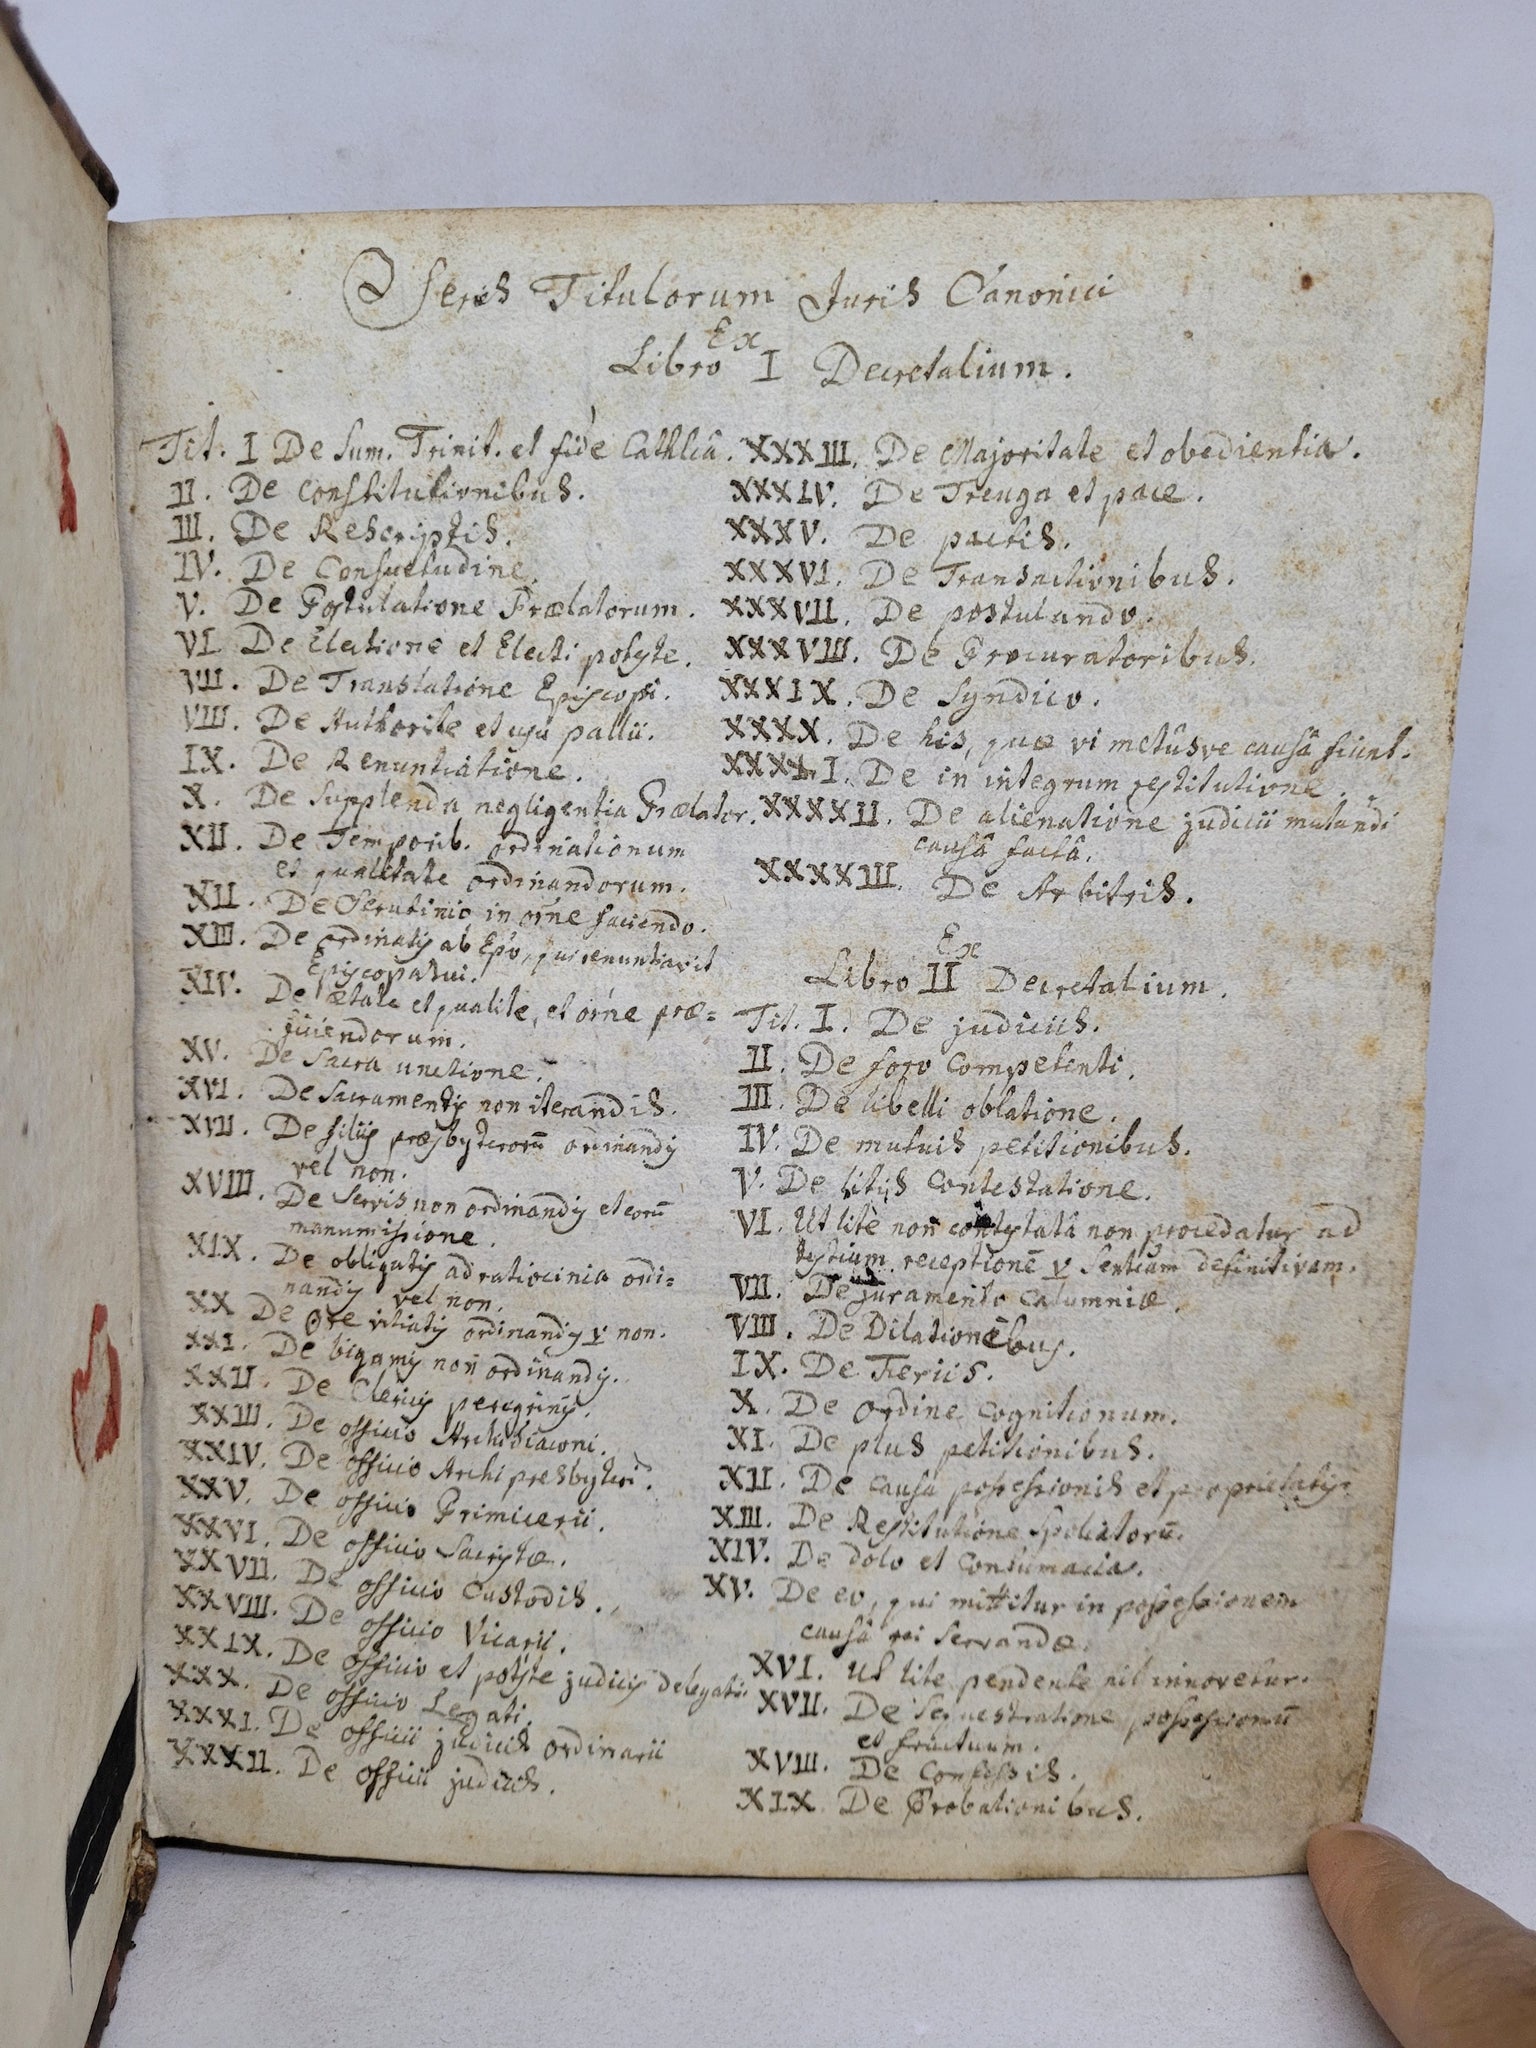 Series Titulorum Juris Canonici
Ex
Libro I Decretalium.
Tit. I De Sum. Trinit. et fide Cathlicâ.
II. De Constitutionibus.
III. De Rescriptis.
IV. De Consuetudine.
V. De Postulatione Prælatorum.
VI De Electione et Electi potste.
VII. De Translatione Episcopi.
VIII. De Authorite et usu pallii.
IX. De Renuntiatione.
X. De Supplenda negligentia Prælator.
XII. De Temporib. ordinationum
et qualitate ordinandorum.
XII. De Scrutinio in orne faciendo.
XIII. De ordinatis ab Epo, qui renuntiavit
Episcopatui.
XIV. De ætate et qualite, et orne præ=
ficiendorum.
XV. De Sacra unctione.
XVI. De Sacramentis non iterandis.
XVII. De filiis præsbyterorū ordinandis
vel non.
XVIII. De Servis non ordinandis et eorū
manumissione.
XIX. De obligatis ad ratiocinia ordi=
nandis vel non.
XX De vitiatis ordinandis v non.
XXI. De bigamis non ordinandis.
XXII. De Clericis peregrinis.
XXIII. De officio Archidiaconi.
XXIV. De officio Archipresbyteri.
XXV. De officio Primicerii.
XXVI. De officio Sacristæ.
XXVII. De officio Custodis.
XXVIII. De officio Vicarii.
XXIX. De officio et potste judicis delegati.
XXX. De officio Legati.
XXXI. De officii judicis ordinarii
XXXII. De officii judicis.
XXXIII. De Majoritate et obedientia.
XXXIV. De Treuga et pace.
XXXV. De pactis.
XXXVI. De Transactionibus.
XXXVII. De postulando.
XXXVIII. De Procuratoribus.
XXXIX. De Syndico.
XXXX. De his, quæ vi metûsve causâ fiunt.
XXXXI. De in integrum restitutione.
XXXXII. De alienatione judicii mutandi
causâ factâ.
XXXXIII. De Arbitris.
Ex
Libro II Decretalium.
Tit. I. De judiciis.
II. De foro Competenti.
III. De libelli oblatione.
IV. De mutuis petitionibus.
V. De litis Contestatione.
VI. Ut lite non contestatâ non procedatur ad
testium receptionē v Sentiam definitivam.
VII. De juramento Calumniæ.
VIII. De Dilationēbus.
IX. De Feriis.
X. De ordine Cognitionum.
XI. De plus petitionibus.
XII. De causa possessionis et proprietatis.
XIII. De Restitutione Spoliatorū.
XIV. De dolo et Contumacia.
XV. De eo, qui mittitur in possessionem
causâ rei Servandæ.
XVI. Ut lite pendente nil innovetur.
XVII. De Sequestratione possessionū
et fructuum.
XVIII. De Confessis.
XIX De Probationibus.